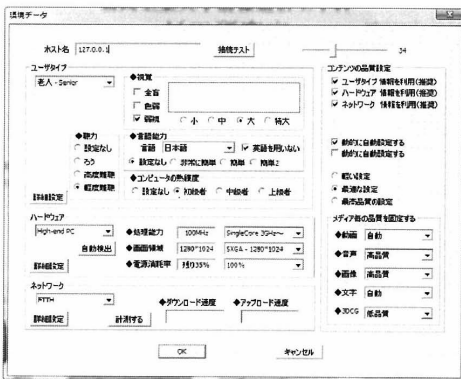 環境データ
ホスト名 127.0.0.1 接続テスト 34
ユーザタイプ
老人 - Senior
◆視覚
全盲
色弱
弱視 小 中 大 特大
◆聴力
設定なし
ろう
高度難聴
軽度難聴
詳細設定
◆言語能力
言語 日本語 英語を用いない
設定なし 非常に簡単 簡単 簡単2
◆コンピュータの熟練度
設定なし 初級者 中級者 上級者
ハードウェア
High-end PC
自動検出
詳細設定
◆処理能力 100MHz SingleCore 3GHz~
◆画面領域 1280*1024 SXGA - 1280*1024
◆電源消耗率 残り35% 100%
ネットワーク
FTTH
詳細設定 計測する
◆ダウンロード速度 ◆アップロード速度
コンテンツの品質設定
ユーザタイプ 情報を利用(推奨)
ハードウェア 情報を利用(推奨)
ネットワーク 情報を利用(推奨)
動的に自動設定する
動的に自動設定する
軽い設定
最適な設定
最高品質の設定
メディア毎の品質を固定する
◆動画 自動
◆音声 高品質
◆画像 高品質
◆文字 自動
◆3DCG 低品質
OK キャンセル